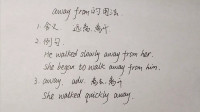 away from的用法
1. 含义 远离,离开
2. 例句.
He walked slowly away from her.
She began to walk away from him.
3. away. adv. 离去,离开
She walked quickly away.